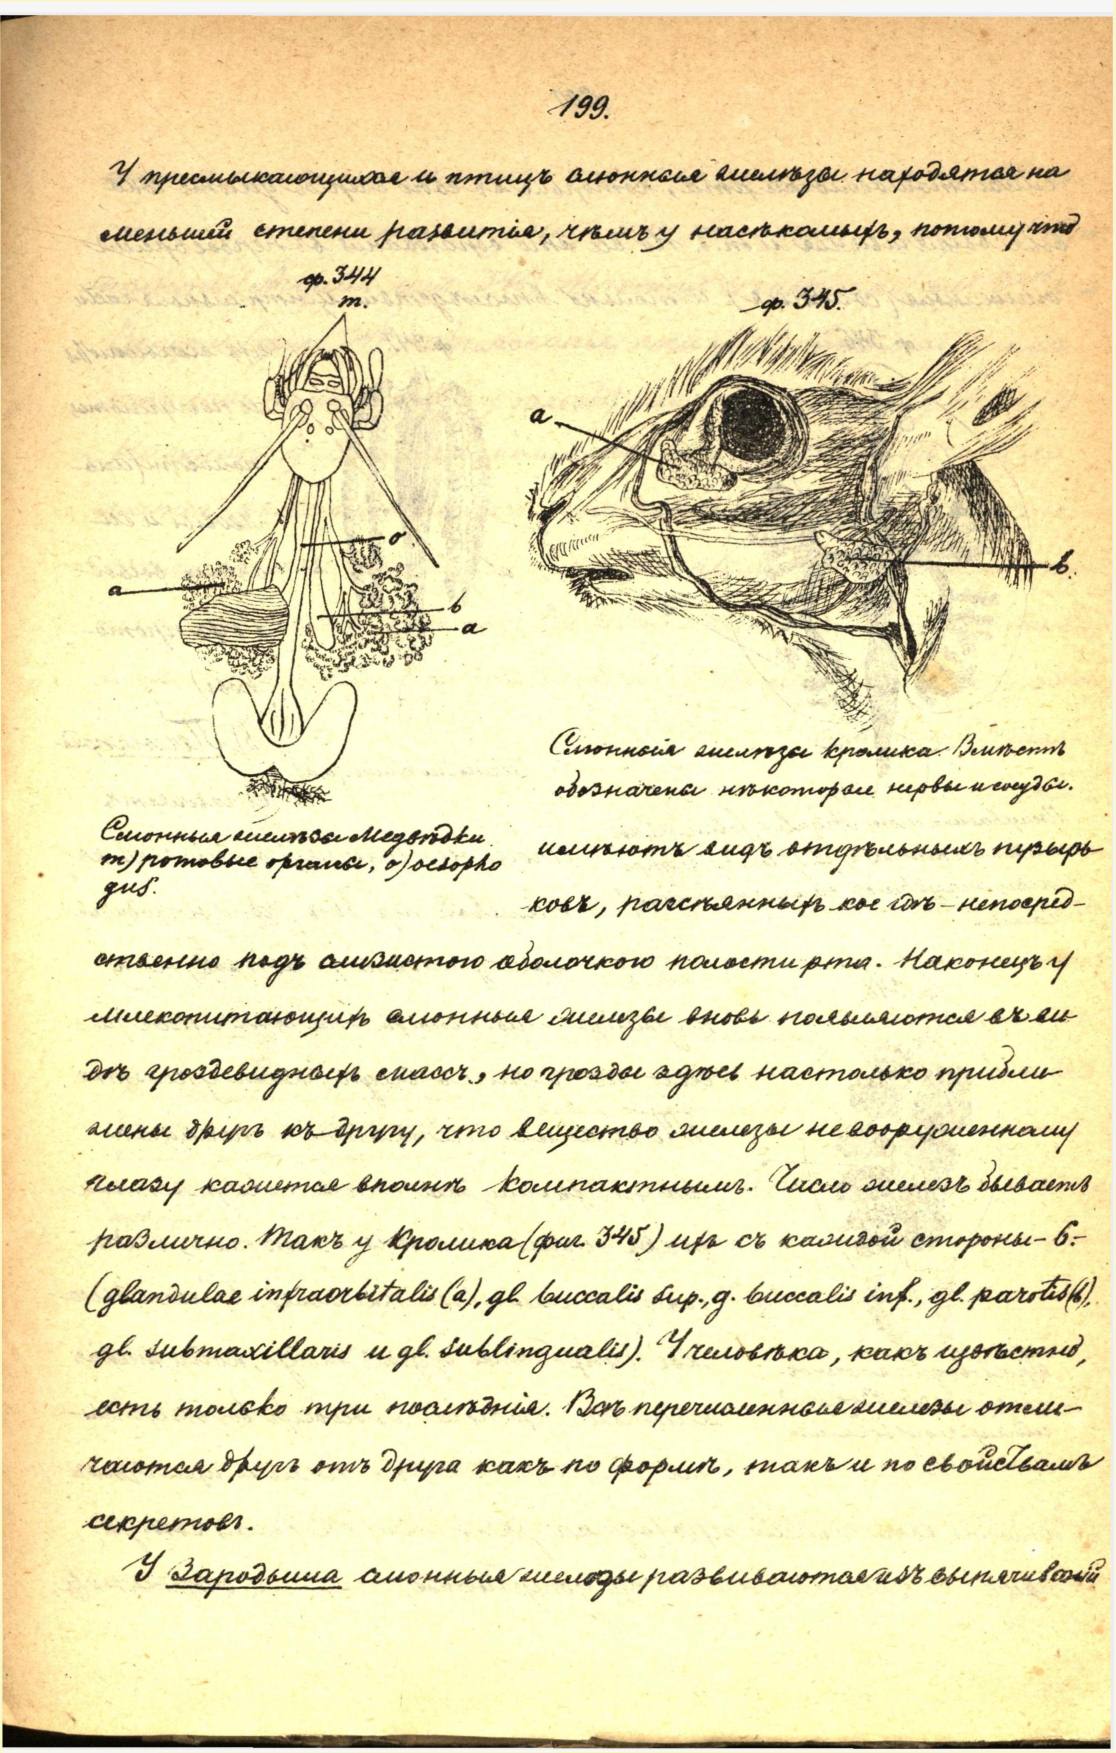 199.
У пресмыкающихся и птицъ слюнныя железы находятся на
меньшей степени развитія, чѣмъ у насѣкомыхъ, потому что
ф. 344
m.
ф. 345.
a
o
a
b
a
b.
Слюнныя железы кролика. Вмѣстѣ
обозначены нѣкоторые нервы и сосуды.
Слюнныя железы Медвѣдки
m) ротовые органы, o) oesopha
gus.
имѣютъ видъ отдѣльныхъ пузырь
ковъ, разсѣянныхъ кое гдѣ – непосред-
ственно подъ слизистою оболочкою полости рта. Наконецъ у
млекопитающихъ слюнныя железы вновь появляются въ ви
дѣ гроздевидныхъ массъ, но грозды здѣсь настолько прибли
жены другъ къ другу, что вещество железы невооруженному
глазу кажется вполнѣ компактнымъ. Число железъ бываетъ
различно. Такъ у Кролика (фиг. 345) ихъ съ каждой стороны – 6.-
(glandulae infraorbitalis (a), gl. buccalis sup., g. buccalis inf., gl. parotis (b),
gl. submaxillaris и gl. sublingualis). У человѣка, какъ извѣстно,
есть только три послѣднія. Всѣ перечисленныя железы отли-
чаются другъ отъ друга какъ по формѣ, такъ и по свойствамъ
секретовъ.
У Зародыша слюнныя железы развиваются изъ выпячиваній